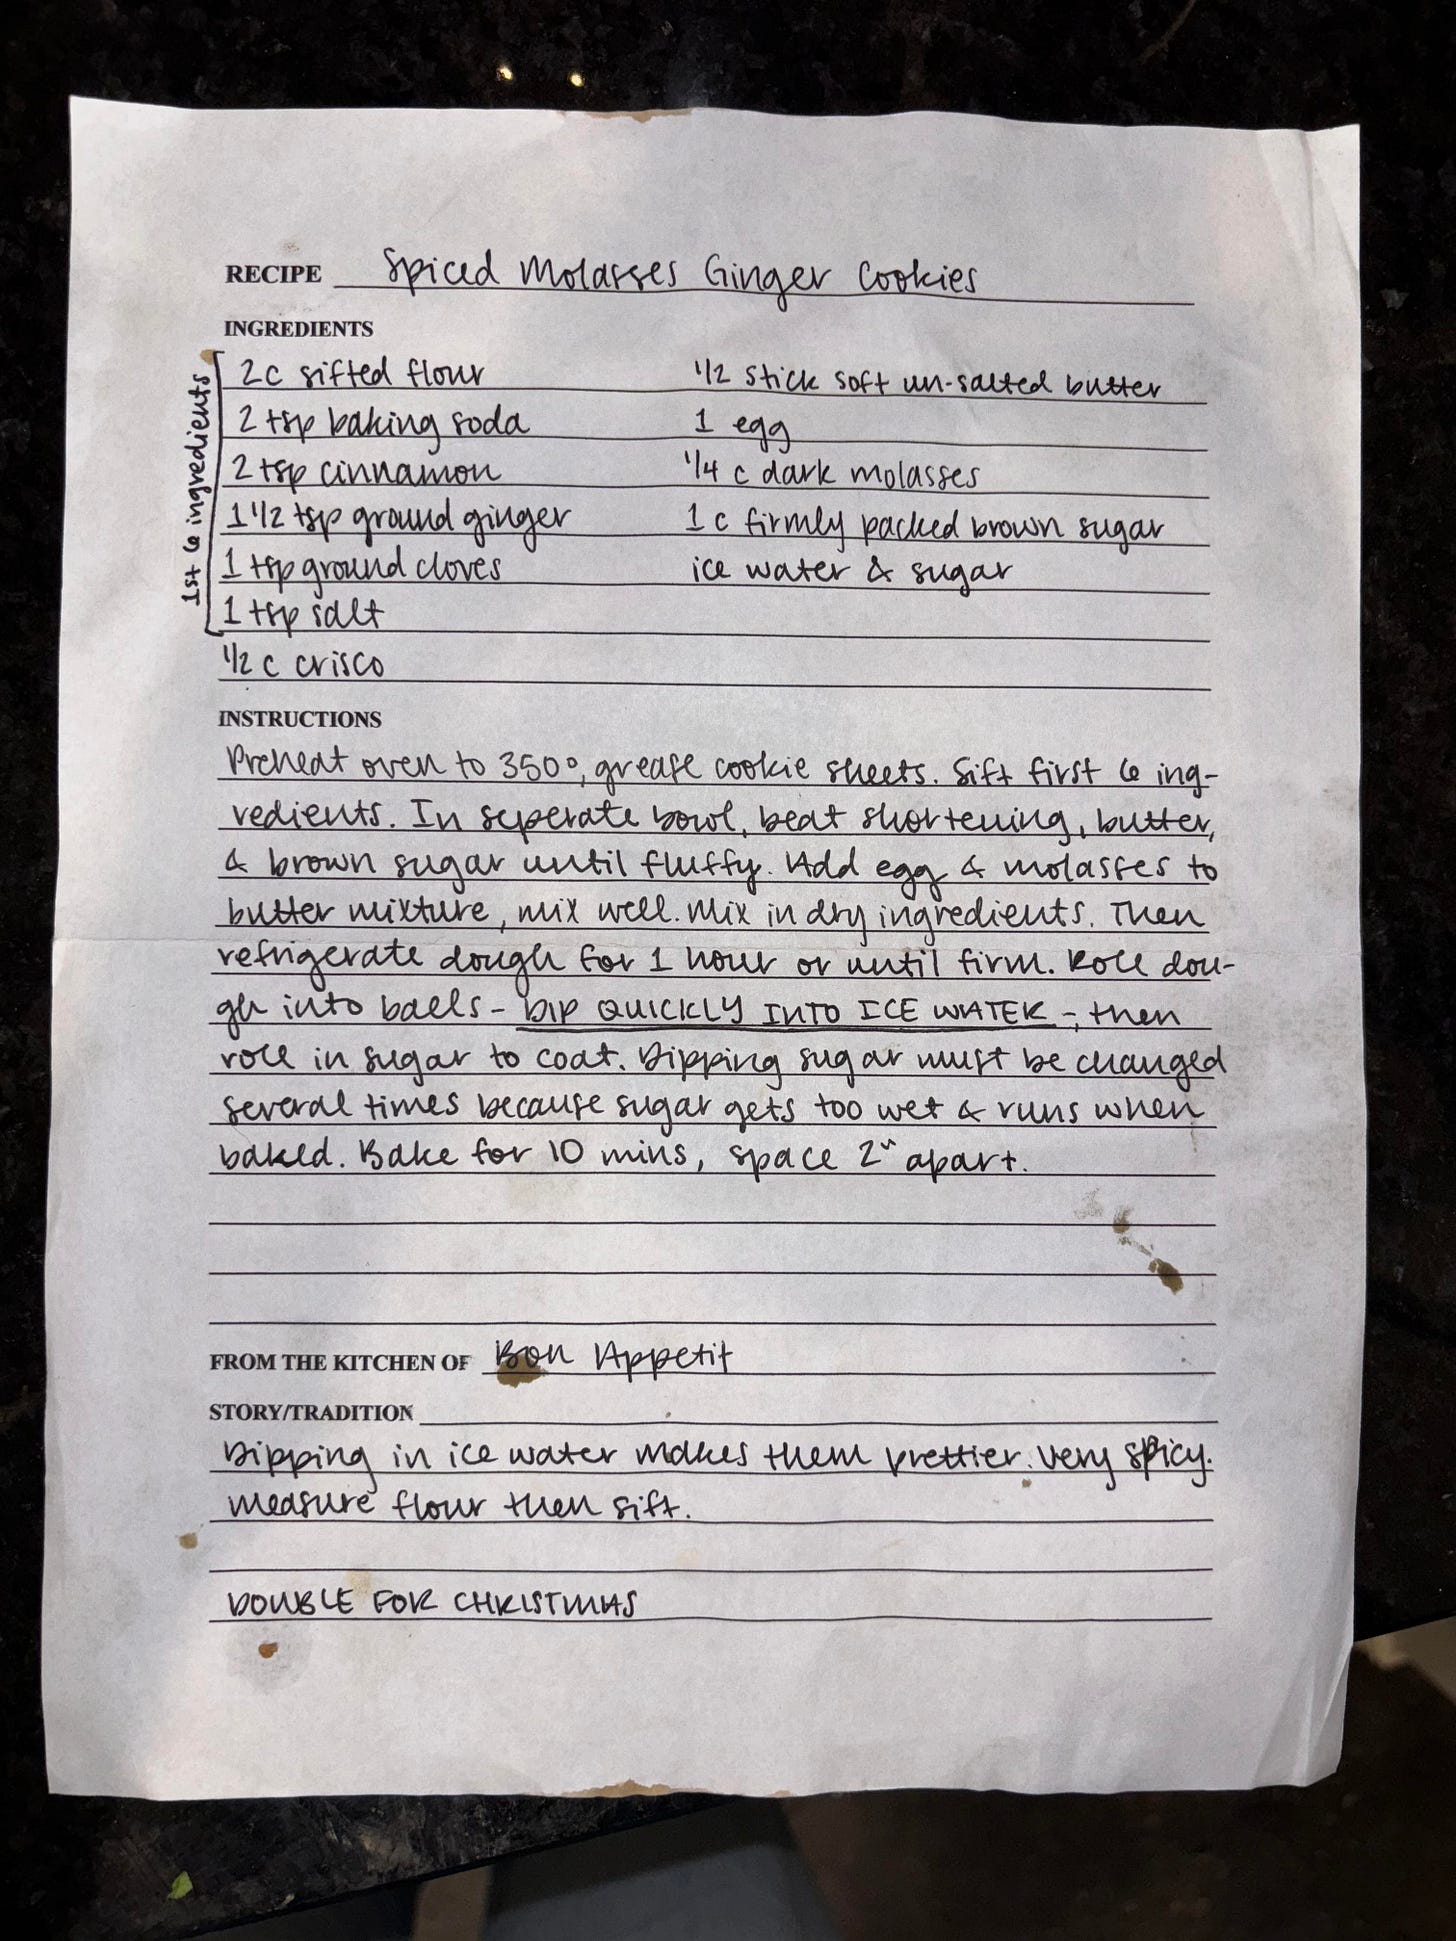 RECIPE Spiced Molasses Ginger Cookies
INGREDIENTS
1st 6 ingredients
2c sifted flour
2 tsp baking soda
2 tsp cinnamon
1 1/2 tsp ground ginger
1 tsp ground cloves
1 tsp salt
1/2 c crisco
1/2 stick soft un-salted butter
1 egg
1/4 c dark molasses
1 c firmly packed brown sugar
ice water & sugar
INSTRUCTIONS
Preheat oven to 350°, grease cookie sheets. Sift first 6 ing-
redients. In seperate bowl, beat shortening, butter,
& brown sugar until fluffy. Add egg & molasses to
butter mixture, mix well. Mix in dry ingredients. Then
refrigerate dough for 1 hour or until firm. Roll dou-
gh into balls - DIP QUICKLY INTO ICE WATER -, then
roll in sugar to coat. Dipping sugar must be changed
several times because sugar gets too wet & runs when
baked. Bake for 10 mins, space 2" apart.
FROM THE KITCHEN OF Bon Appetit
STORY/TRADITION
Dipping in ice water makes them prettier. Very spicy.
measure flour then sift.
DOUBLE FOR CHRISTMAS